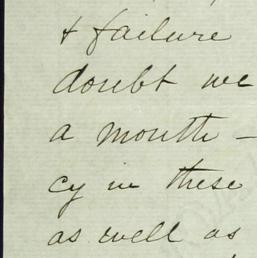 & failure
doubt we
a month –
cy in these
as well as